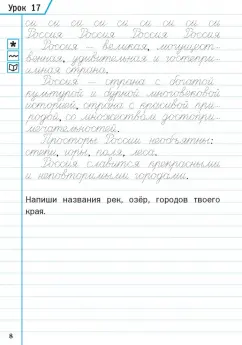 Урок 17
си си си си си си си си си
Россия Россия Россия Россия
Россия — великая, могущест-
венная, удивительная и гостепри-
имная страна.
Россия — страна с богатой
культурой и бурной многовековой
историей, страна с красивой при-
родой, со множеством достопри-
мечательностей.
Просторы России необъятны:
степи, горы, поля, леса.
Россия славится прекрасными
и неповторимыми городами.
Напиши названия рек, озёр, городов твоего
края.
8